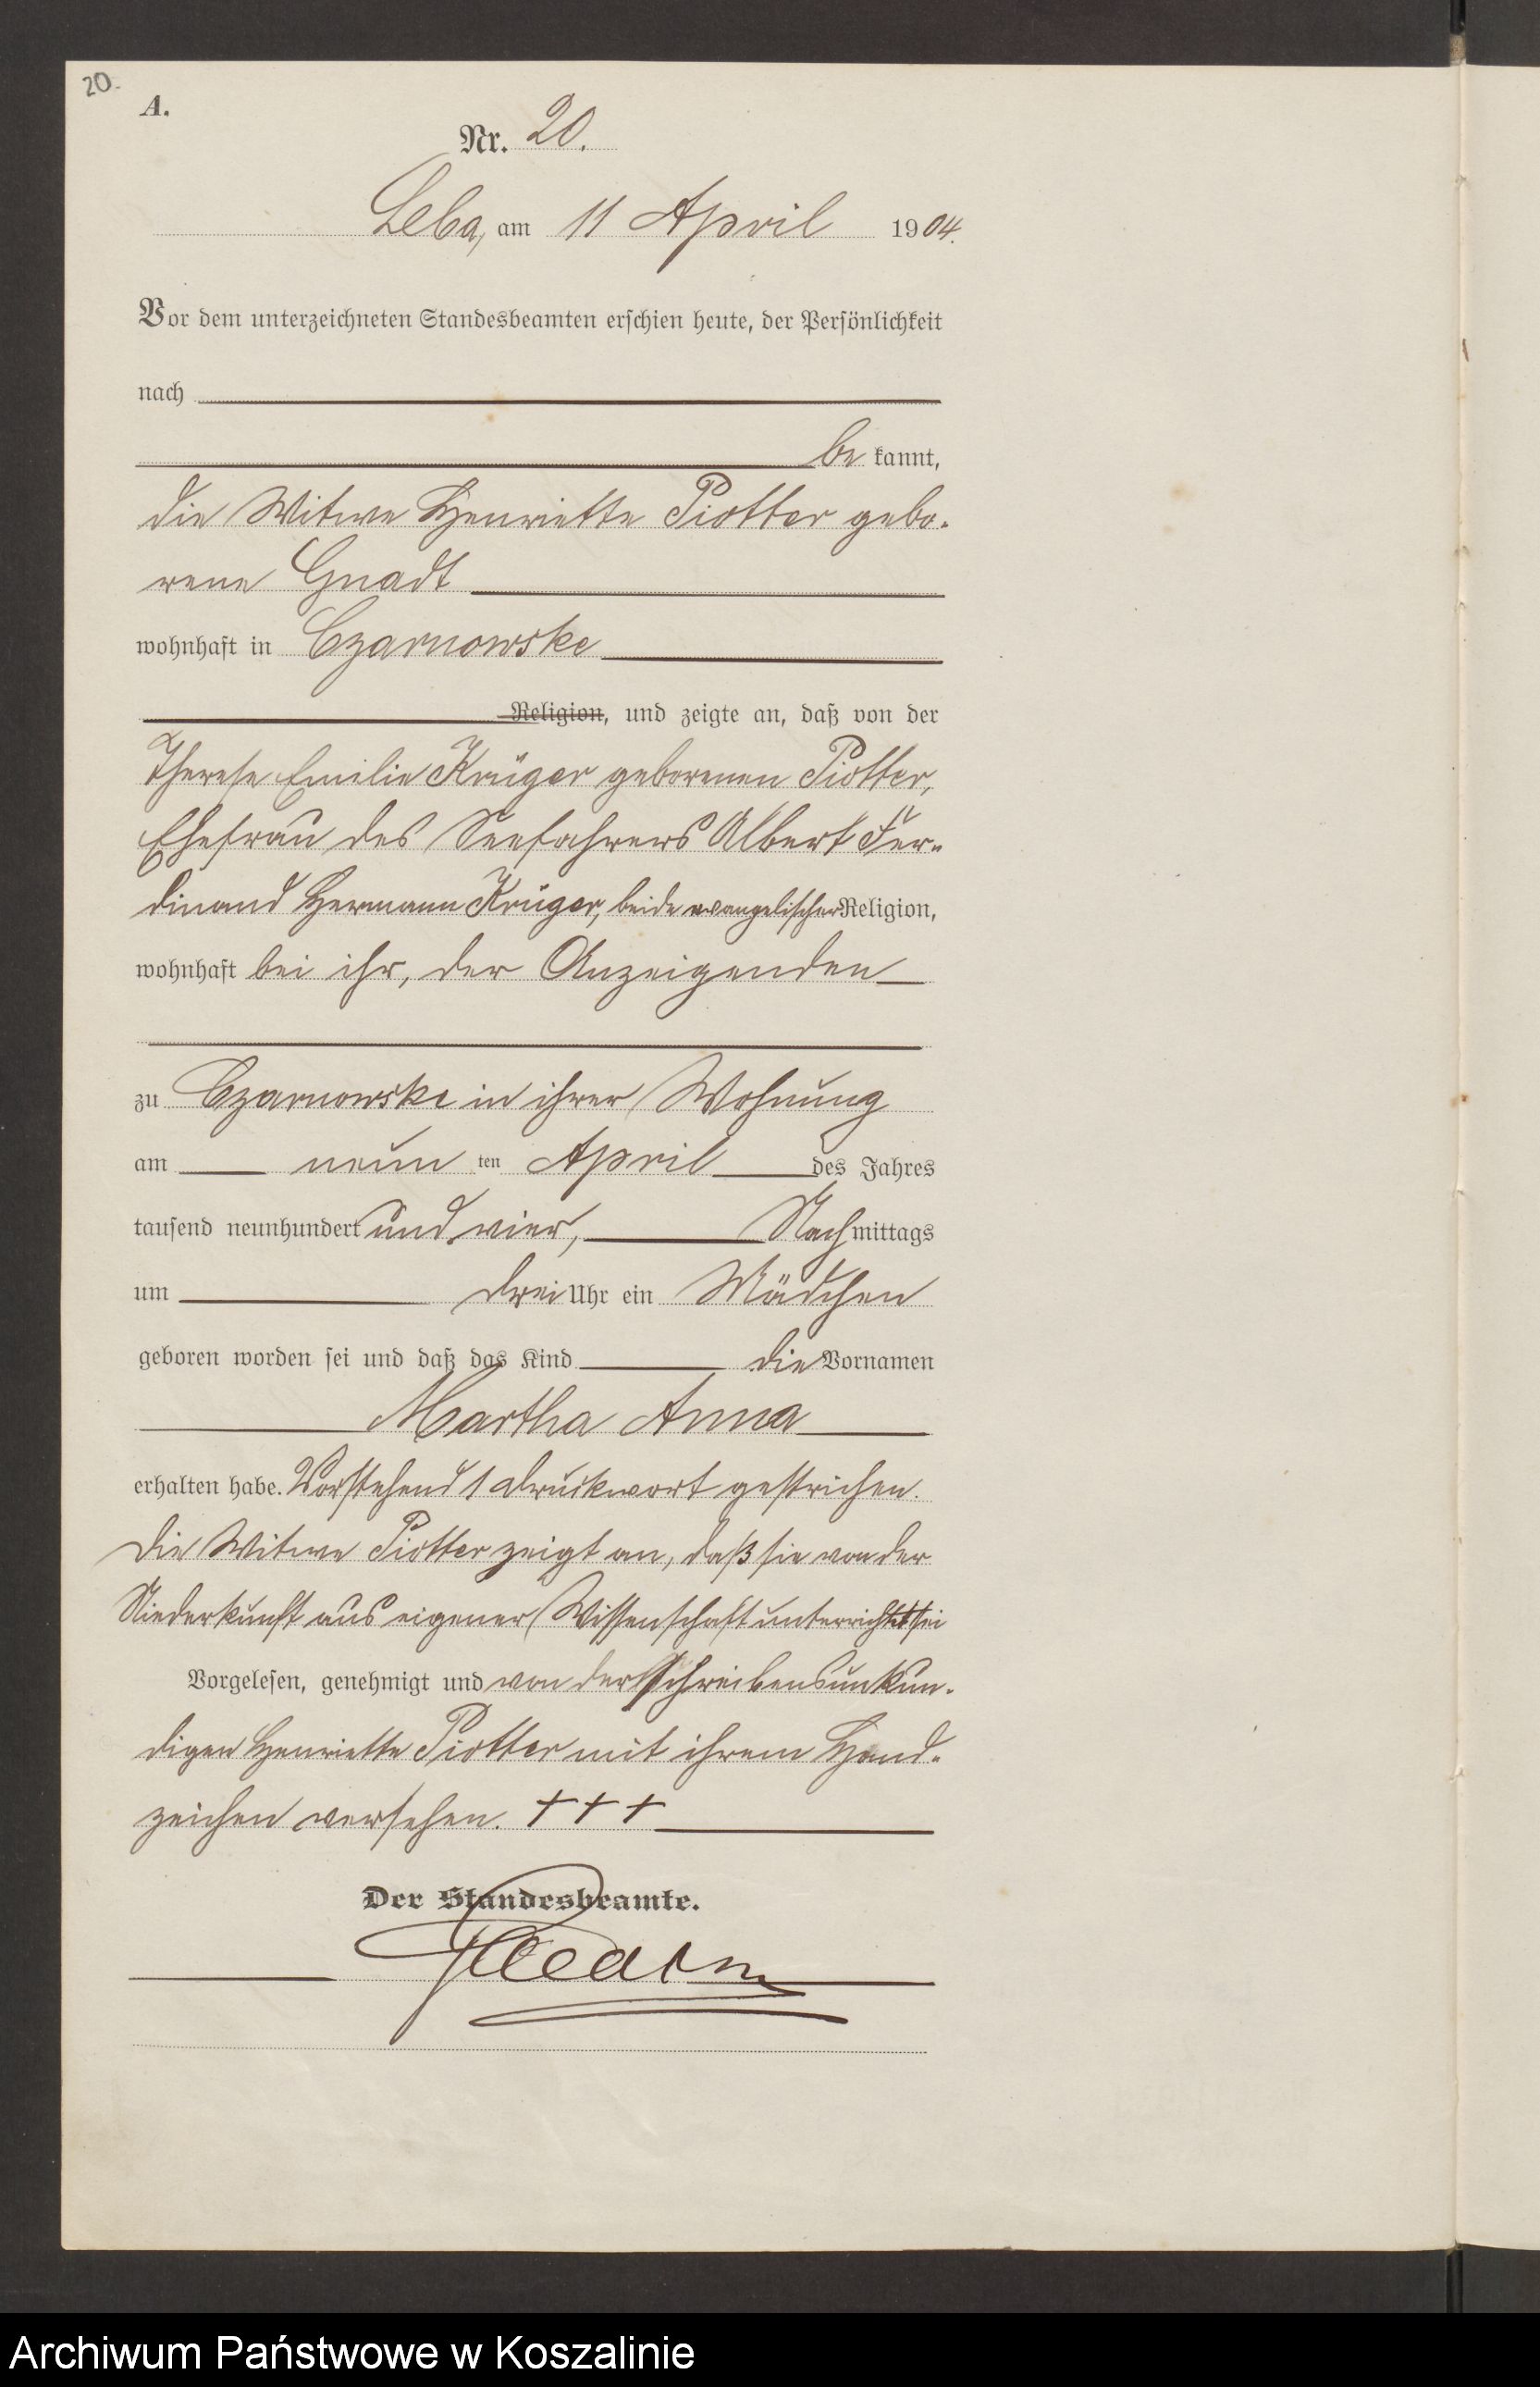 20.
A.
Nr. 20.
Leba, am 11 April 1904.
Vor dem unterzeichneten Standesbeamten erschien heute, der Persönlichkeit
nach
be kannt,
die Witwe Henriette Piotter gebo-
rene Gnadt
wohnhaft in Czarnowske
Religion, und zeigte an, daß von der
Therese Emilie Krüger geborenen Piotter,
Ehefrau des Seefahrers Albert Fer-
dinand Hermann Krüger, beide evangelischer Religion,
wohnhaft bei ihr, der Anzeigenden
zu Czarnowske in ihrer Wohnung
am neun ten April des Jahres
tausend neunhundert und vier, Nachmittags
um drei Uhr ein Mädchen
geboren worden sei und daß das Kind die Vornamen
Martha Anna
erhalten habe. Vorstehend 1 Druckwort gestrichen.
Die Witwe Piotter zeigt an, daß sie von der
Niederkunft aus eigener Wissenschaft unterrichtet sei
Vorgelesen, genehmigt und von der schreibensunkun-
digen Henriette Piotter mit ihrem Hand-
zeichen versehen. +++
Der Standesbeamte.
Archiwum Państwowe w Koszalinie